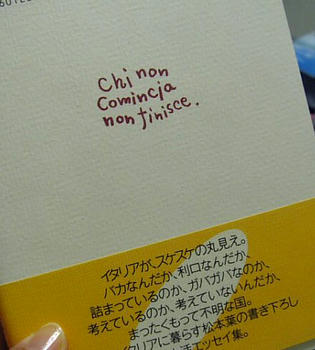 Chi non
Comincia
non finisce.
イタリアが、スケスケの丸見え。
バカなんだか、利口なんだか、
詰まっているのか、ガバガバなのか、
考えているのか、考えていないんだか、
まったくもって不明な国。
イタリアに暮らす松本葉の書き下ろし
エッセイ集。